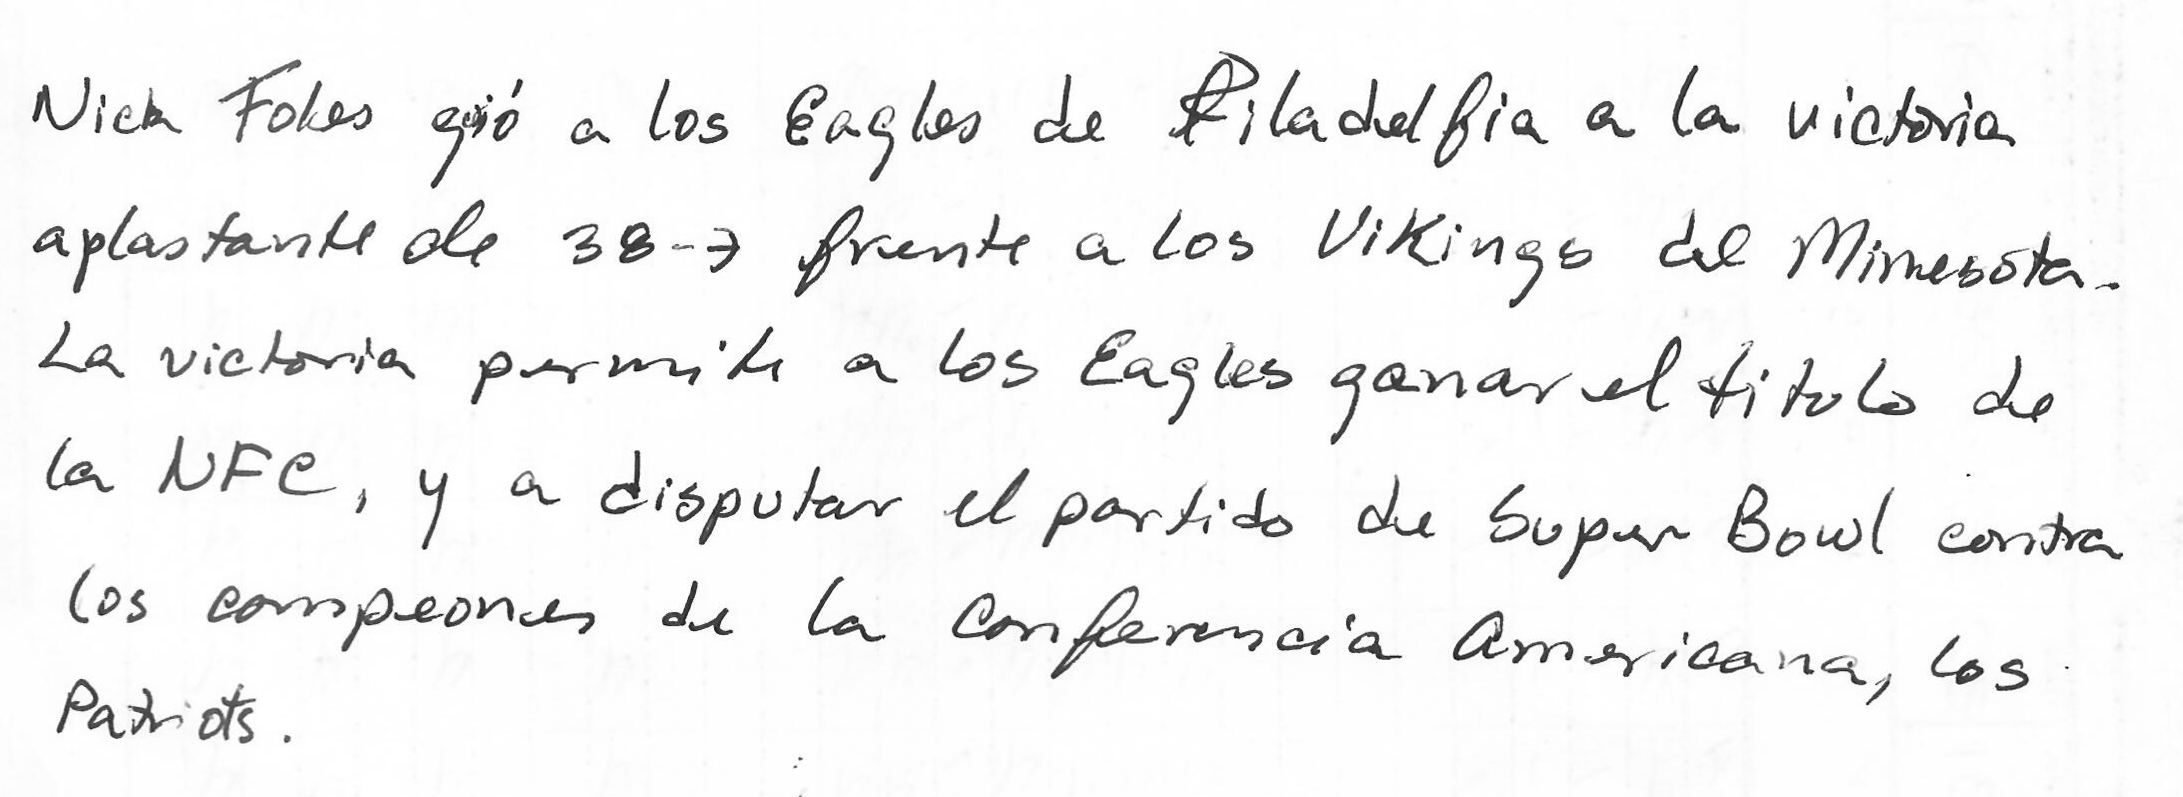 Nick Foles guió a los Eagles de Filadelfia a la victoria
aplastante de 38-7 frente a los Vikings del Minnesota.
La victoria permite a los Eagles ganar el titulo de
la NFC, y a disputar el partido de Super Bowl contra
los campeones de la Conferencia Americana, los
Patriots.